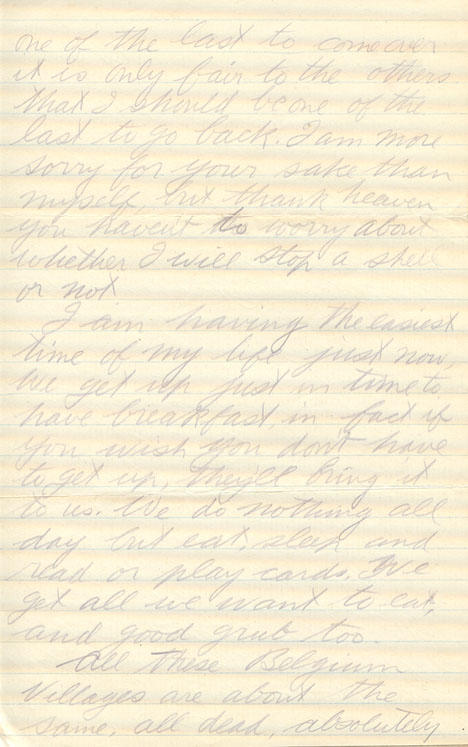 one of the last to come over
it is only fair to the others
that I should be one of the
last to go back. I am more
sorry for your sake than
myself, but thank heaven
you havent to worry about
whether I will stop a shell
or not
I am having the easiest
time of my life just now,
We get up just in time to
have breakfast, in fact if
you wish you don't have
to get up, they'll bring it
to us. We do nothing all
day but eat, sleep and
read or play cards. We
get all we want to eat,
and good grub too.
All these Belgium
Villages are about the
same, all dead, absolutely